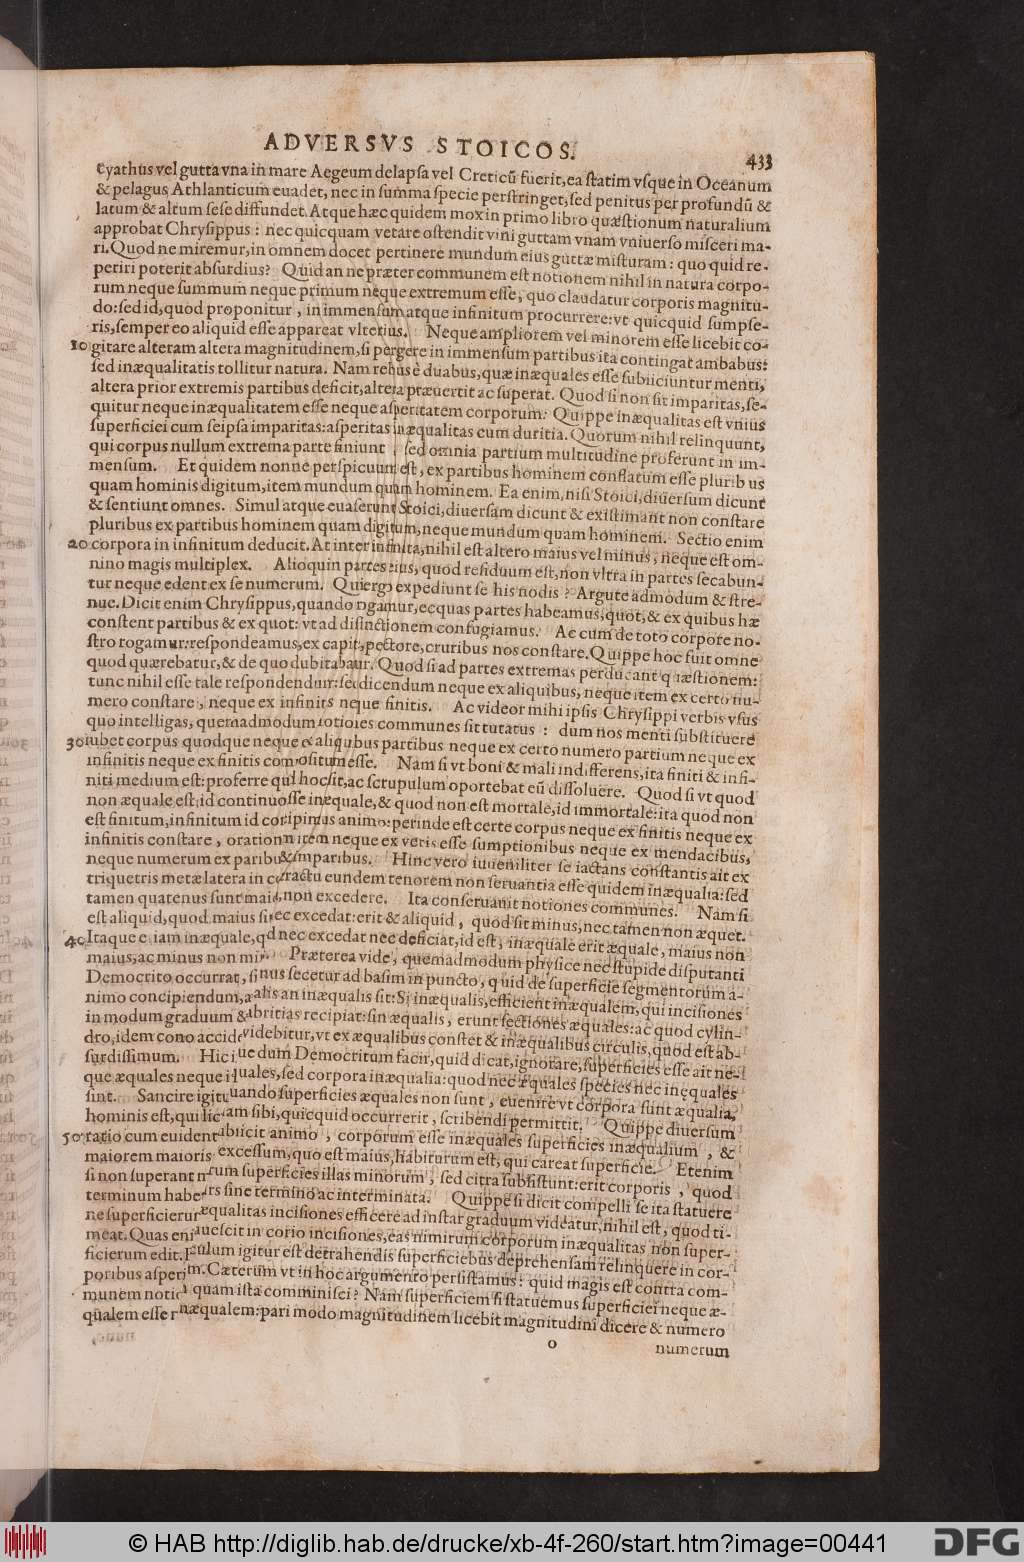 ADVERSVS STOICOS.
433
Cyathus vel gutta vna in mare Aegeum delapsa vel Creticū fuerit, ea statim vsque in Oceanum
& pelagus Athlanticum euadet, nec in summa specie perstringet, sed penitus per profundū &
latum & altum sese diffundet. Atque hæc quidem mox in primo libro quæstionum naturalium
approbat Chrysippus: nec quicquam vetare ostendit vini guttam vnam vniuerso misceri ma-
ri. Quod ne miremur, in omnem docet pertinere mundum eius guttæ misturam: quo quid re-
periri poterit absurdius? Quid an ne præter communem est notionem nihil in natura corpo-
rum neque summum neque primum neque extremum esse, quo claudatur corporis magnitu-
do: sed id, quod proponitur, in immensum atque infinitum procurrere: vt quicquid sumpse-
ris, semper eo aliquid esse appareat vlterius. Neque ampliorem vel minorem esse licebit co-
10 gitare alteram altera magnitudinem, si pergere in immensum partibus ita contingat ambabus:
sed inæqualitatis tollitur natura. Nam rebus è duabus, quæ inæquales esse subiiciuntur menti,
altera prior extremis partibus deficit, altera præuertit ac superat. Quod si non sit imparitas, se-
quitur neque inæqualitatem esse neque asperitatem corporum: Quippe inæqualitas est vnius
superficiei cum seipsa imparitas: asperitas inæqualitas cum duritia. Quorum nihil relinquunt,
qui corpus nullum extrema parte finiunt, sed omnia partium multitudine proferunt in im-
mensum. Et quidem nonne perspicuum est, ex partibus hominem conflatum esse pluribus
quam hominis digitum, item mundum quam hominem. Ea enim, nisi Stoici, diuersum dicunt
& sentiunt omnes. Simul atque euaserunt Stoici, diuersam dicunt & existimant non constare
pluribus ex partibus hominem quam digitum, neque mundum quam hominem. Sectio enim
20 corpora in infinitum deducit. At inter infinita, nihil est altero maius vel minus, neque est om-
nino magis multiplex. Alioquin partes eius, quod residuum est, non vltra in partes secabun-
tur neque edent ex se numerum. Qui ergo expediunt se his nodis? Argute admodum & stre-
nue. Dicit enim Chrysippus, quando rogamur, ecquas partes habeamus, quot, & ex quibus hæ
constent partibus & ex quot: vt ad distinctionem confugiamus. Ac cum de toto corpore no-
stro rogamur: respondeamus, ex capite, pectore, cruribus nos constare. Quippe hoc fuit omne
quod quærebatur, & de quo dubitabatur. Quod si ad partes extremas perducant quæstionem:
tunc nihil esse tale respondendum: sed dicendum neque ex aliquibus, neque item ex certo nu-
mero constare, neque ex infinitis neque finitis. Ac videor mihi ipsis Chrysippi verbis vsus
quo intelligas, quemadmodum notiones communes sit tutatus: dum nos menti substituere
30 iubet corpus quodque neque ex aliquibus partibus neque ex certo numero partium neque ex
infinitis neque ex finitis compositum esse. Nam si vt boni & mali indifferens, ita finiti & infi-
niti medium est: proferre quid hoc sit, ac scrupulum oportebat eū dissoluere. Quod si vt quod
non æquale est, id continuo esse inæquale, & quod non est mortale, id immortale: ita quod non
est finitum, infinitum id concipimus animo: perinde est certe corpus neque ex finitis neque ex
infinitis constare, orationem item neque ex veris esse sumptionibus neque ex mendacibus,
neque numerum ex paribus & imparibus. Hinc vero iuueniliter se iactans constantis ait ex
triquetris metæ latera in contractu eundem tenorem non seruantia esse quidem inæqualia: sed
tamen quatenus sunt maia, non excedere. Ita conseruauit notiones communes. Nam si
est aliquid, quod maius sit nec excedat: erit & aliquid, quod sit minus, nec tamen non æquet.
40 Itaque etiam inæquale, qd nec excedat nec deficiat, id est, inæquale erit æquale, maius non
maius, ac minus non mi Præterea vide, quemadmodum physice nec stupide disputanti
Democrito occurrat, si nus secetur ad basim in puncto, quid de superficie segmentorum a-
nimo concipiendum, æqualis an inæqualis sit: Si inæqualis, efficient inæqualem, qui incisiones
in modum graduum & abritias recipiat: sin æqualis, erunt sectiones æquales: ac quod cylin-
dro, idem cono accidere videbitur, vt ex æqualibus constet & inæqualibus circulis, quod est ab-
surdissimum. Hic i ue dum Democritum facit, quid dicat, ignorare, superficies esse ait ne-
que æquales neque i quales, sed corpora inæqualia: quod nec æquales species nec inęquales
sint. Sancire igitur quando superficies æquales non sunt, euenire vt corpora sunt æqualia,
hominis est, qui lic am sibi, quicquid occurrerit, scribendi permittit. Quippe diuersum
50 ratio cum euident abiicit animo, corporum esse inæquales superficies inæqualium, &
maiorem maioris excessum, quo est maius, habiturum est, qui careat superficie. Etenim
si non superant n rum superficies illas minorum, sed citra subsistunt: erit corporis, quod
terminum habe rs sine termino ac interminata. Quippe si dicit compelli se ita statuere
ne superficierum æqualitas incisiones efficere ad instar graduum videatur, nihil est, quod ti-
meat. Quas eni uescit in corio incisiones, eas nimirum corporum inæqualitas non super-
ficierum edit. F ulum igitur est detrahendis superficiebus deprehensam relinquere in cor-
poribus asperi m. Cæterum vt in hoc argumento persistamus: quid magis est contra com-
munem notio quam ista comminisci? Nam superficiem si statuemus superficiei neque æ-
qualem esse n inæqualem: pari modo magnitudinem licebit magnitudini dicere & numero
o
numerum
© HAB http://diglib.hab.de/drucke/xb-4f-260/start.htm?image=00441
DFG